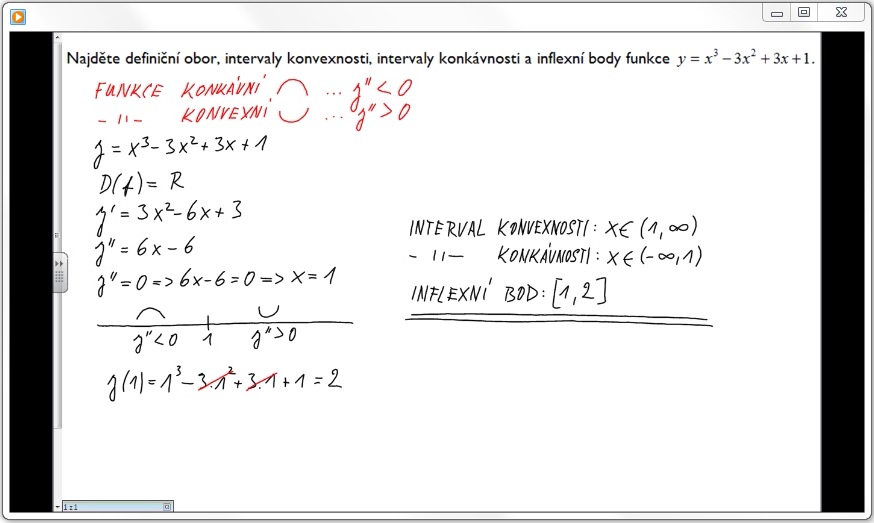 Najděte definiční obor, intervaly konvexnosti, intervaly konkávnosti a inflexní body funkce y = x³ − 3x² + 3x + 1.
FUNKCE KONKÁVNÍ ⌒ ... y'' < 0
- 〃 - KONVEXNÍ ⌣ ... y'' > 0
y = x³ − 3x² + 3x + 1
D(f) = R
y' = 3x² − 6x + 3
y'' = 6x − 6
y'' = 0 => 6x − 6 = 0 => x = 1
y'' < 0 1 y'' > 0
y(1) = 1³ − 3.1² + 3.1 + 1 = 2
INTERVAL KONVEXNOSTI: x ∈ (1, ∞)
- 〃 - KONKÁVNOSTI: x ∈ (−∞, 1)
INFLEXNÍ BOD: [1, 2]
1 z 1